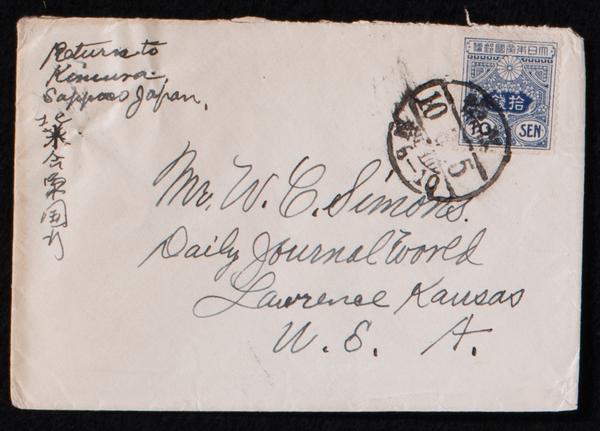 Return to
Kimura,
Sapporo Japan.
北米合衆国行
大日本帝國郵便
拾銭
10 SEN
10
5
6-10
Mr. W. C. Simons.
Daily Journal World
Lawrence Kansas
U. S. A.